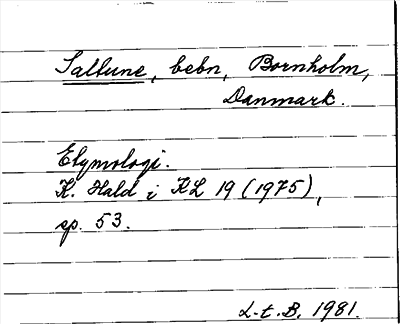 Saltune, bebn, Bornholm,
Danmark.
Etymologi.
K. Hald i KL 19 (1975),
sp. 53.
L-t. B. 1981.